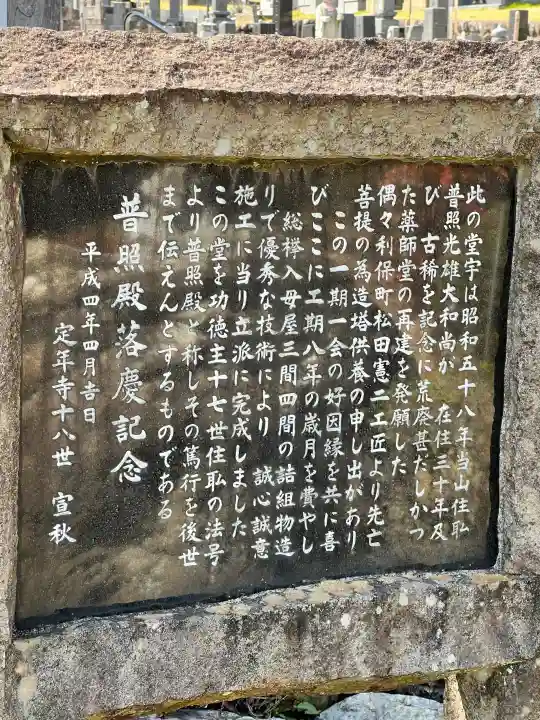 此の堂宇は昭和五十八年当山住職
普照光雄大和尚が 在住三十年及
び 古稀を記念に荒廃甚だしかつ
た薬師堂の再建を発願した
偶々利保町松田憲二工匠より先亡
菩提の為造塔供養の申し出があり
この一期一会の好因縁を共に喜
びここに工期八年の歳月を費やし
総欅入母屋三間四間の詰組物造
りで優秀な技術により 誠心誠意
施工に当り立派に完成しました
この堂を功徳主十七世住職の法号
より普照殿と称しその篤行を後世
まで伝えんとするものである
普照殿落慶記念
平成四年四月吉日
定年寺十八世 宣秋